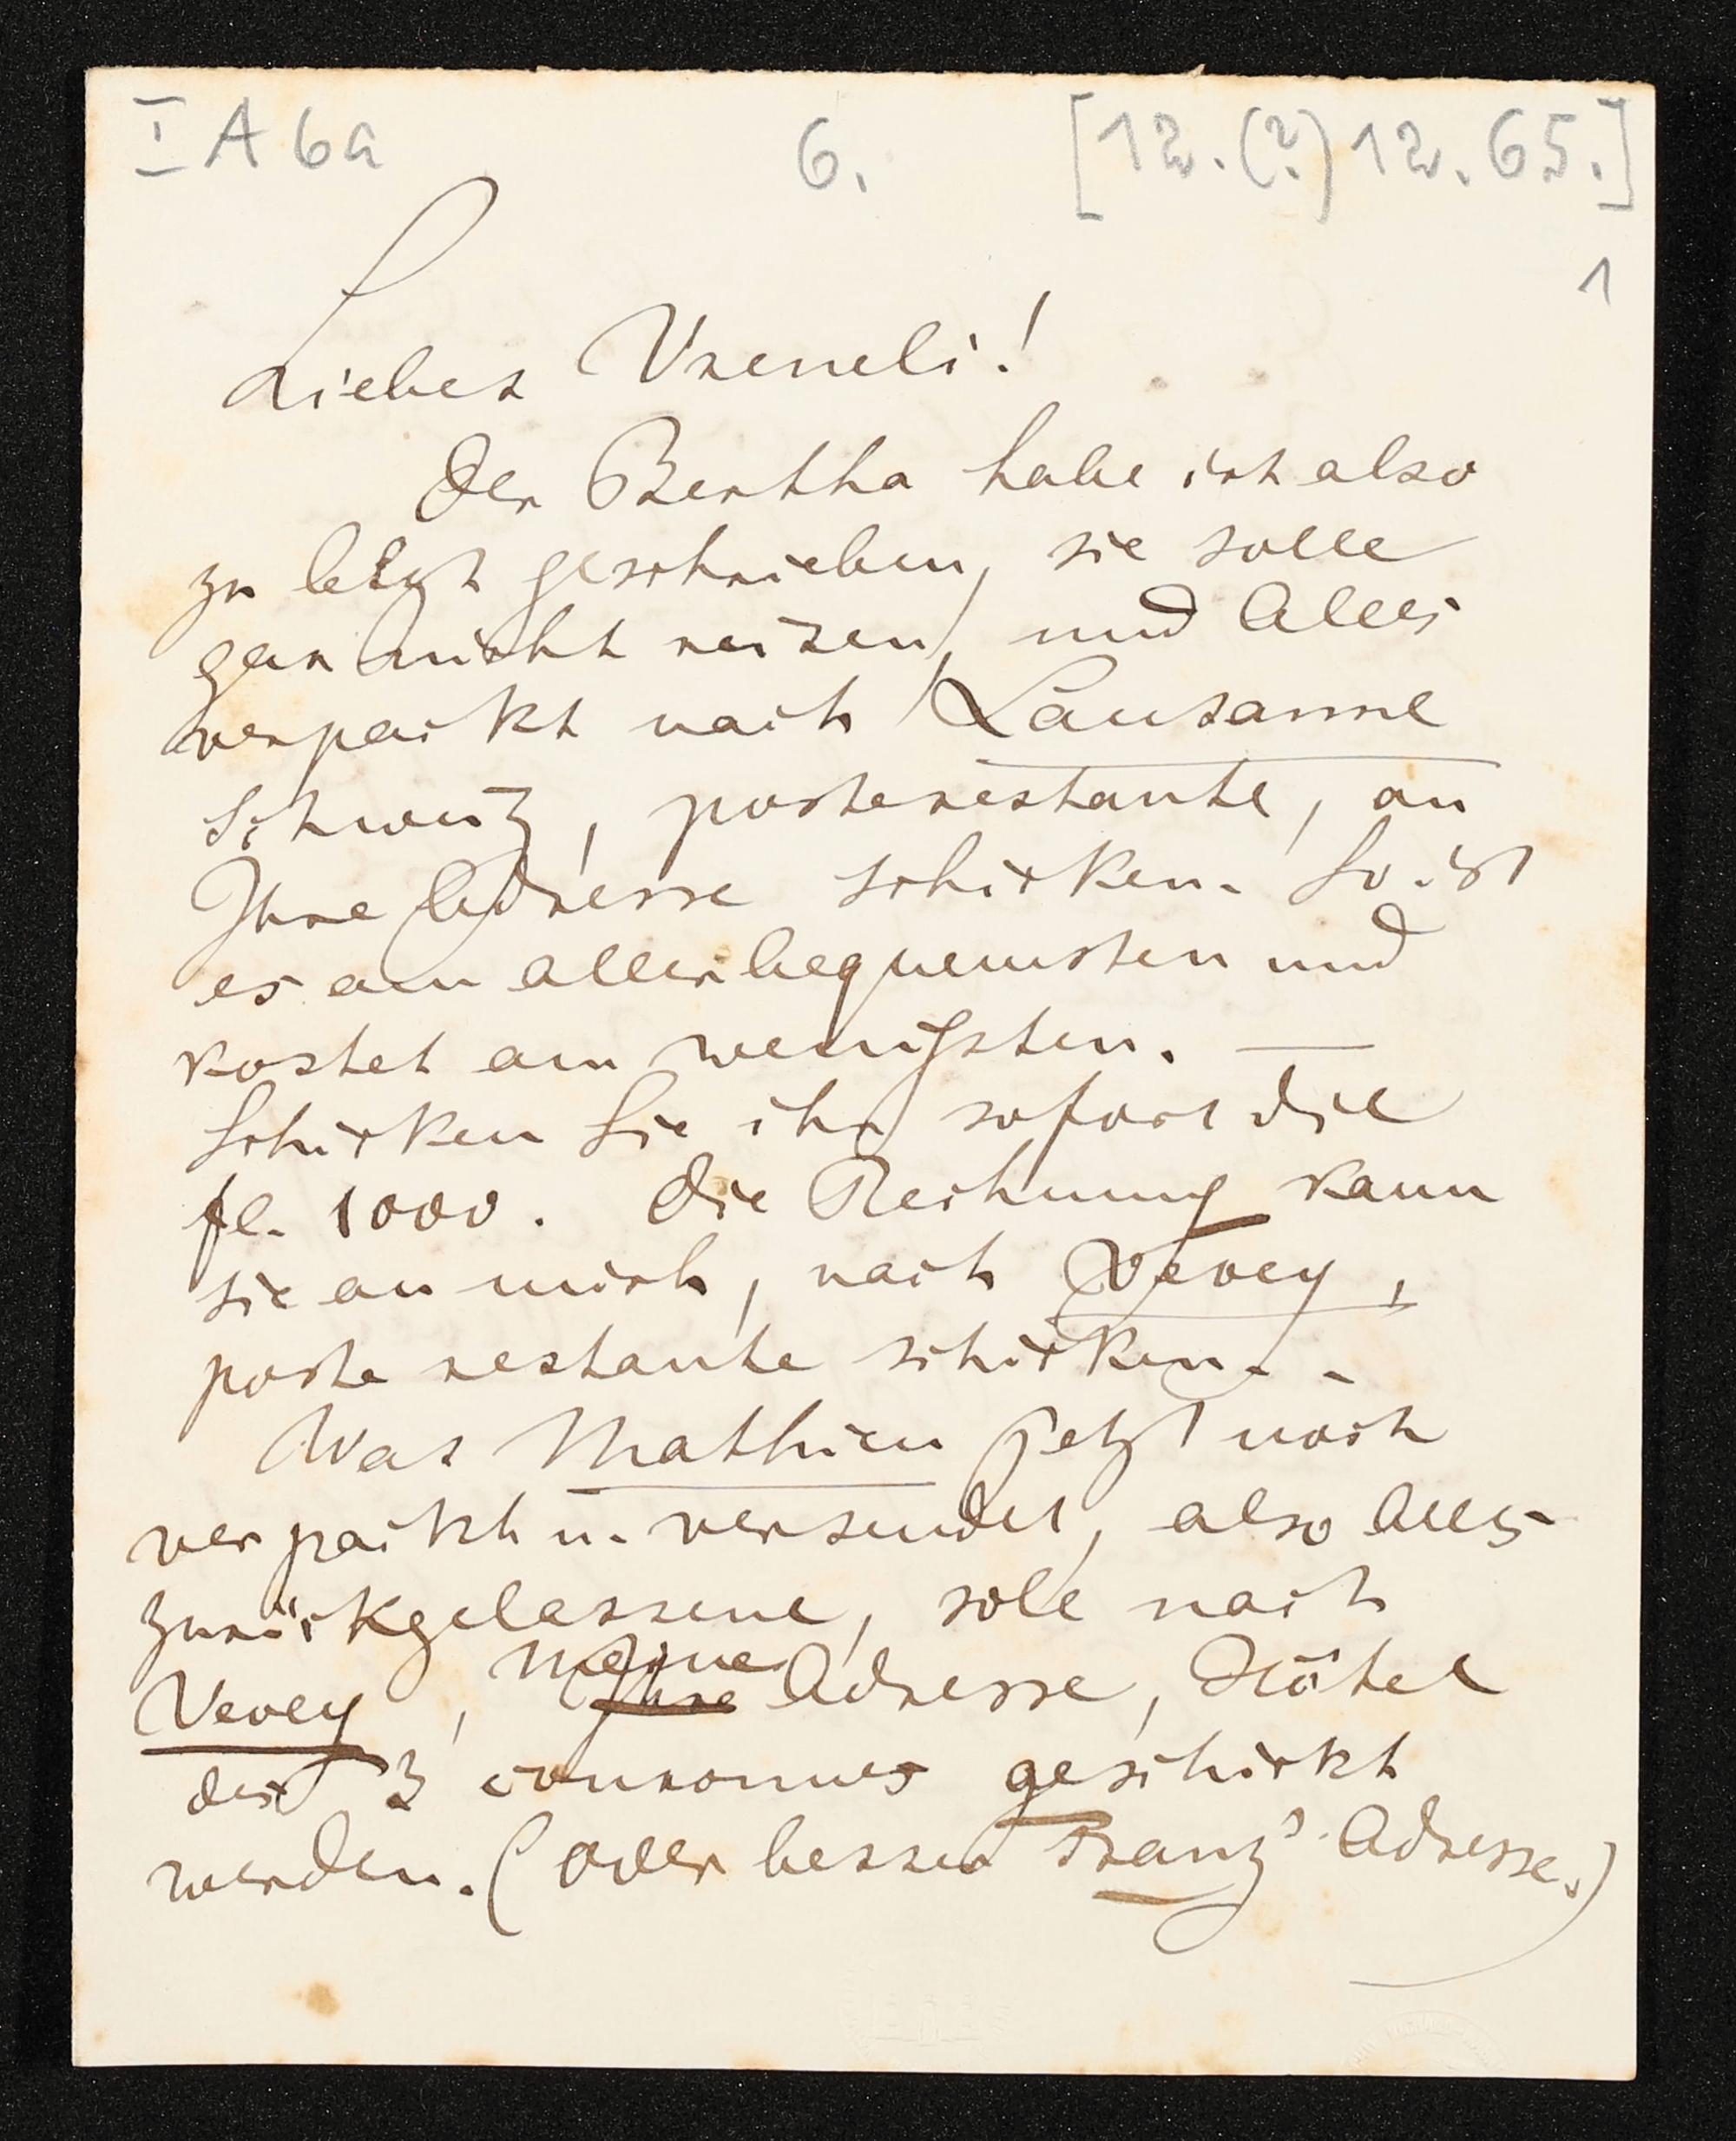 I A 6a 6. [12.(?) 12. 65.]
1
Liebes Vreneli!
Der Bertha habe ich also
zu letzt geschrieben, sie solle
gar nicht reisen, und Alles
verpackt nach Lausanne
Schweiz, poste restante, an
Ihre Adresse schicken. So ist
es am allerbequemsten und
kostet am wenigsten. —
Schicken Sie ihr sofort die
fl. 1000. Die Rechnung kann
sie an mich, nach Vevey,
poste restante schicken. -
Was Mathieu jetzt noch
verpackt u. versendet, also Alles
zurückgelassene, soll nach
meine
Vevey, Ihre Adresse, Hôtel
des 3 couronnes geschickt
werden. (oder besser Franz' Adresse.)